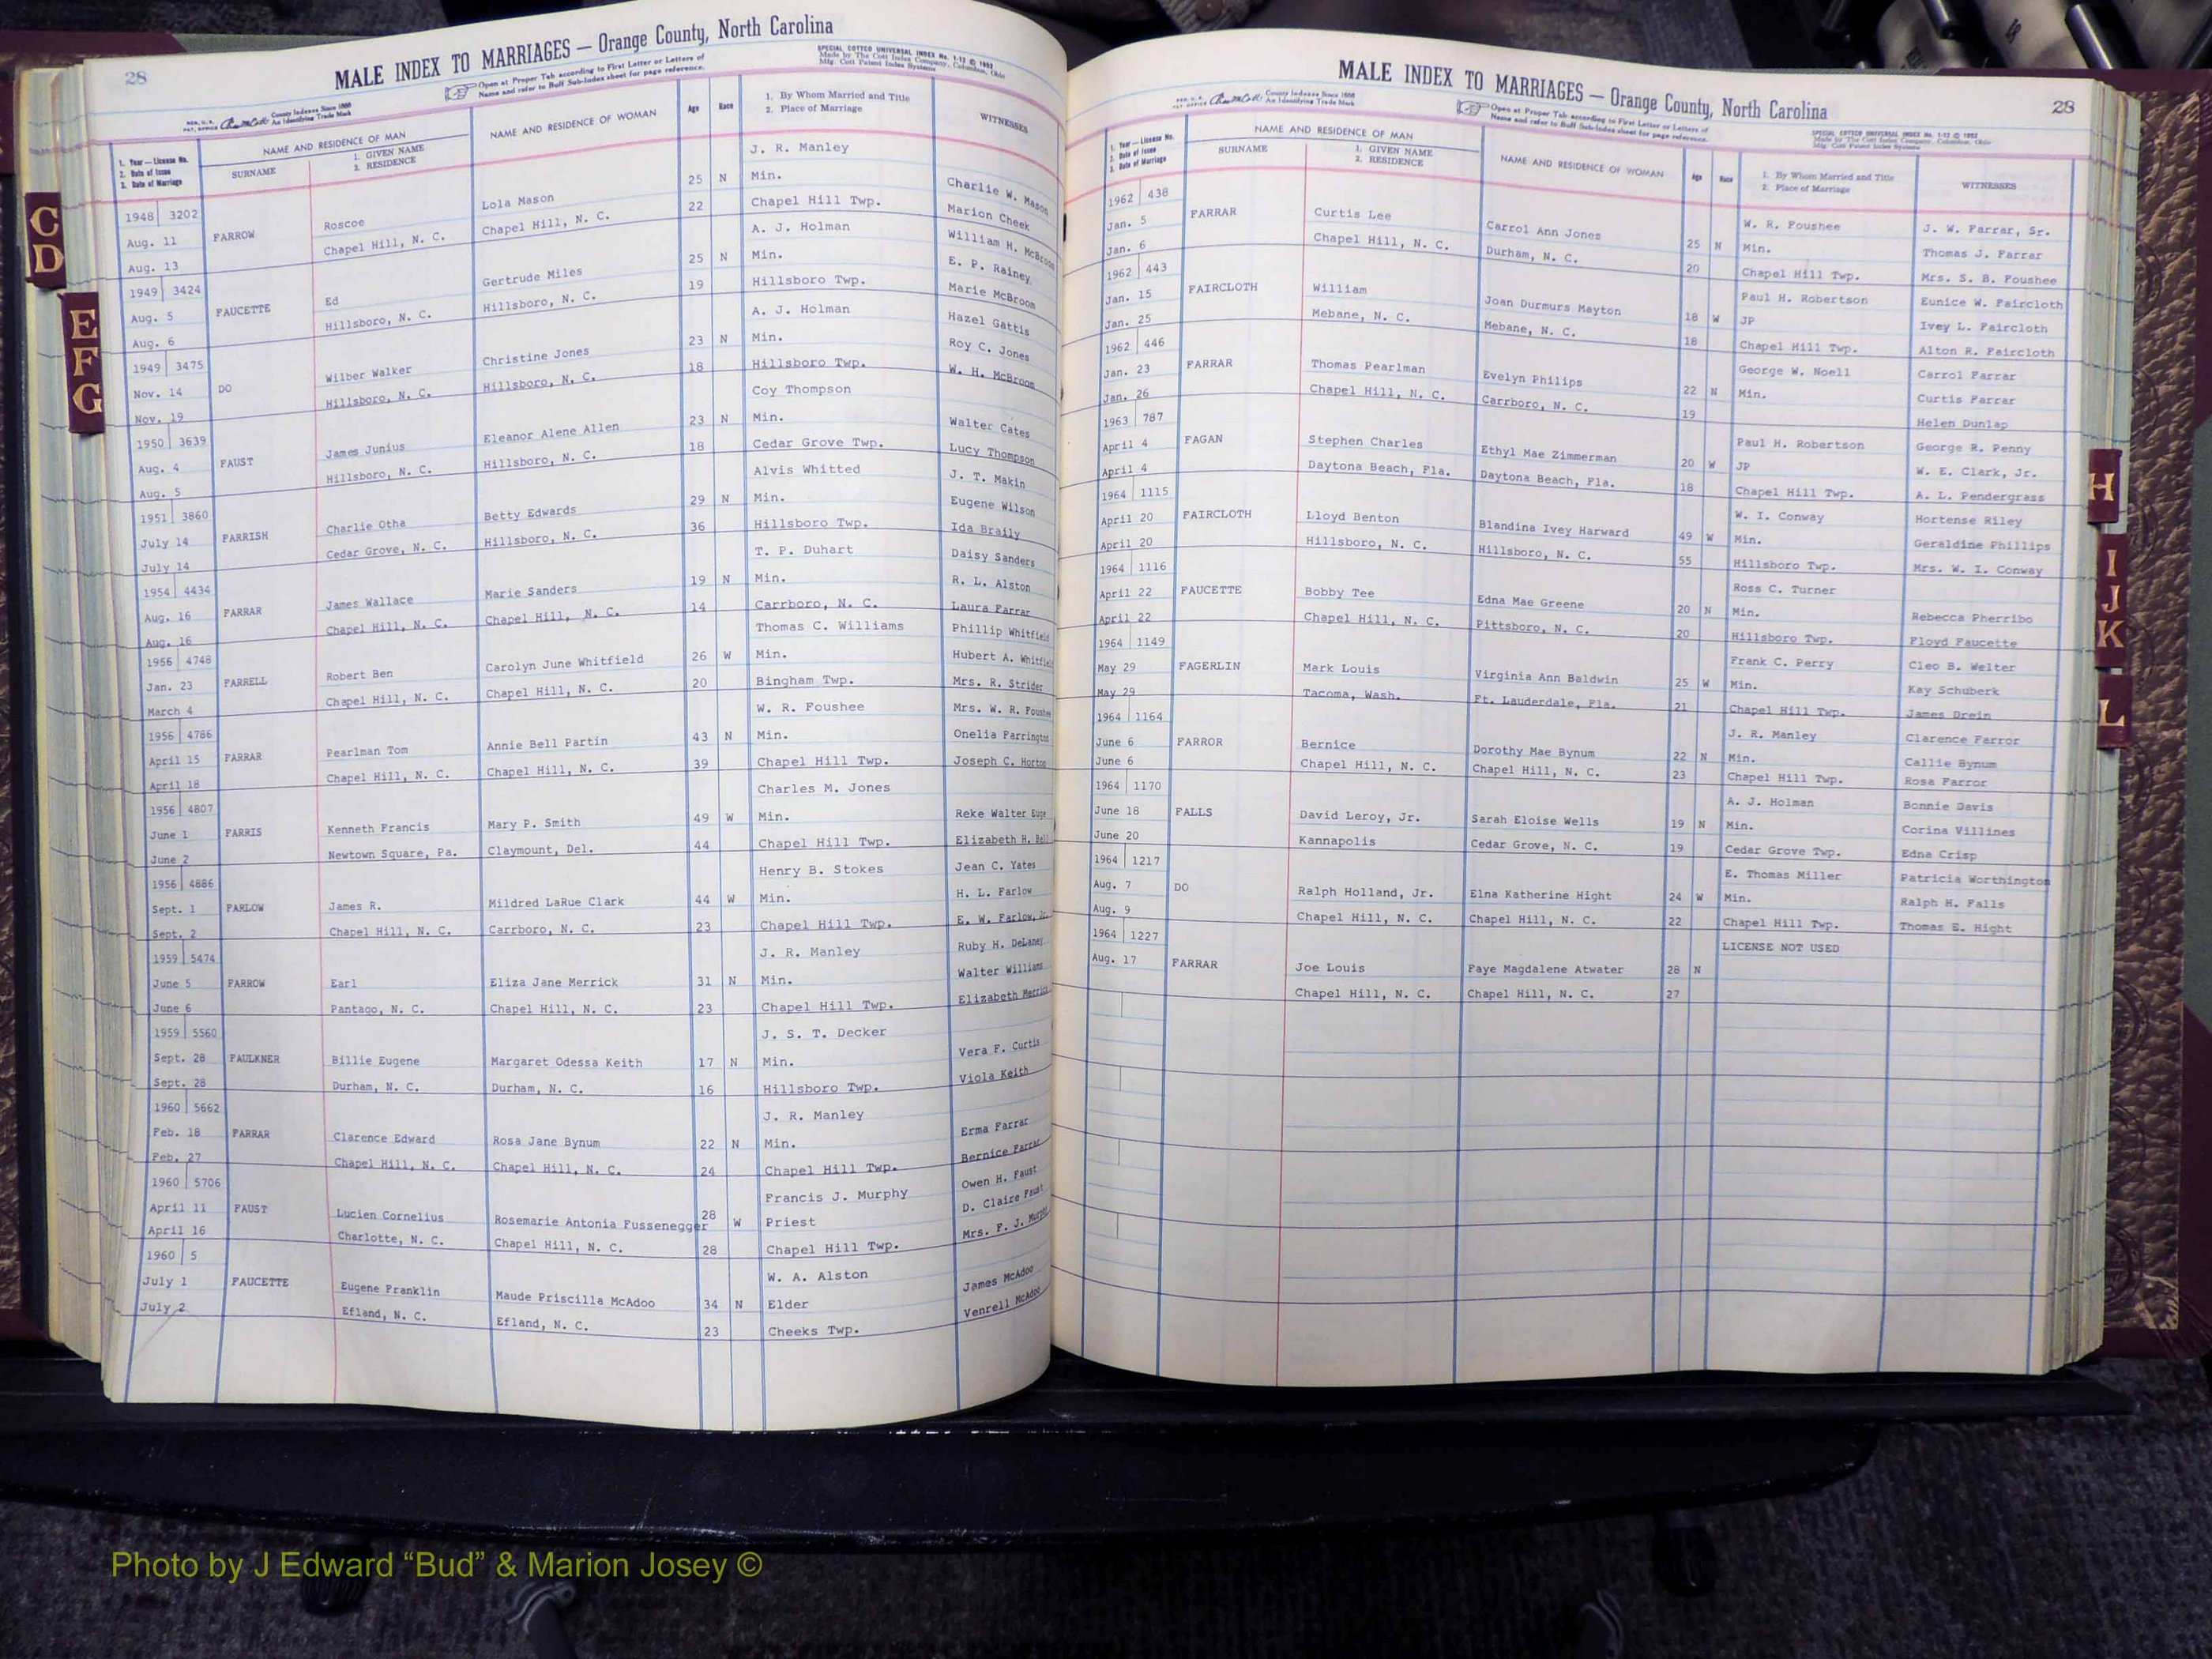 28
MALE INDEX TO MARRIAGES — Orange County, North Carolina
Open at Proper Tab according to First Letter or Letters of
Name and refer to Buff Sub-Index sheet for page reference.
SPECIAL COTTCO UNIVERSAL INDEX No. 1-12 © 1952
Made by The Cott Index Company, Columbus, Ohio
Mfg. Cott Patent Index Systems
County Indexes Since 1888
An Identifying Trade Mark
1. Year—License No.
2. Date of Issue
3. Date of Marriage
NAME AND RESIDENCE OF MAN
SURNAME
1. GIVEN NAME
2. RESIDENCE
NAME AND RESIDENCE OF WOMAN
Age
Race
1. By Whom Married and Title
2. Place of Marriage
WITNESSES
1948 3202 J. R. Manley
Aug. 11 FARROW Roscoe Lola Mason 25 N Min. Charlie W. Mason
Aug. 13 Chapel Hill, N. C. Chapel Hill, N. C. 22 Chapel Hill Twp. Marion Cheek
1949 3424 A. J. Holman William H. McBroom
Aug. 5 FAUCETTE Ed Gertrude Miles 25 N Min. E. P. Rainey
Aug. 6 Hillsboro, N. C. Hillsboro, N. C. 19 Hillsboro Twp. Marie McBroom
1949 3475 A. J. Holman Hazel Gattis
Nov. 14 DO Wilber Walker Christine Jones 23 N Min. Roy C. Jones
Nov. 19 Hillsboro, N. C. Hillsboro, N. C. 18 Hillsboro Twp. W. H. McBroom
1950 3639 Coy Thompson
Aug. 4 FAUST James Junius Eleanor Alene Allen 23 N Min. Walter Cates
Aug. 5 Hillsboro, N. C. Hillsboro, N. C. 18 Cedar Grove Twp. Lucy Thompson
1951 3860 Alvis Whitted J. T. Makin
July 14 FARRISH Charlie Otha Betty Edwards 29 N Min. Eugene Wilson
July 14 Cedar Grove, N. C. Hillsboro, N. C. 36 Hillsboro Twp. Ida Braily
1954 4434 T. P. Duhart Daisy Sanders
Aug. 16 FARRAR James Wallace Marie Sanders 19 N Min. R. L. Alston
Aug. 16 Chapel Hill, N. C. Chapel Hill, N. C. 14 Carrboro, N. C. Laura Farrar
1956 4748 Thomas C. Williams Phillip Whitfield
Jan. 23 FARRELL Robert Ben Carolyn June Whitfield 26 W Min. Hubert A. Whitfield
March 4 Chapel Hill, N. C. Chapel Hill, N. C. 20 Bingham Twp. Mrs. R. Strider
1956 4786 W. R. Foushee Mrs. W. R. Foushee
April 15 FARRAR Pearlman Tom Annie Bell Partin 43 N Min. Onelia Farrington
April 18 Chapel Hill, N. C. Chapel Hill, N. C. 39 Chapel Hill Twp. Joseph C. Horton
1956 4807 Charles M. Jones
June 1 FARRIS Kenneth Francis Mary P. Smith 49 W Min. Reke Walter Euge
June 2 Newtown Square, Pa. Claymount, Del. 44 Chapel Hill Twp. Elizabeth H. Bell
1956 4886 Henry B. Stokes Jean C. Yates
Sept. 1 FARLOW James R. Mildred LaRue Clark 44 W Min. H. L. Farlow
Sept. 2 Chapel Hill, N. C. Carrboro, N. C. 23 Chapel Hill Twp. E. W. Farlow, Jr.
1959 5474 J. R. Manley Ruby H. DeLaney
June 5 FARROW Earl Eliza Jane Merrick 31 N Min. Walter Williams
June 6 Pantago, N. C. Chapel Hill, N. C. 23 Chapel Hill Twp. Elizabeth Merrick
1959 5560 J. S. T. Decker
Sept. 28 FAULKNER Billie Eugene Margaret Odessa Keith 17 N Min. Vera F. Curtis
Sept. 28 Durham, N. C. Durham, N. C. 16 Hillsboro Twp. Viola Keith
1960 5662 J. R. Manley
Feb. 18 FARRAR Clarence Edward Rosa Jane Bynum 22 N Min. Erma Farrar
Feb. 27 Chapel Hill, N. C. Chapel Hill, N. C. 24 Chapel Hill Twp. Bernice Farrar
1960 5706 Francis J. Murphy Owen H. Faust
April 11 FAUST Lucien Cornelius Rosemarie Antonia Fussenegger 28 W Priest D. Claire Faust
April 16 Charlotte, N. C. Chapel Hill, N. C. 28 Chapel Hill Twp. Mrs. F. J. Murphy
1960 5 W. A. Alston
July 1 FAUCETTE Eugene Franklin Maude Priscilla McAdoo 34 N Elder James McAdoo
July 2 Efland, N. C. Efland, N. C. 23 Cheeks Twp. Venrell McAdoo
MALE INDEX TO MARRIAGES — Orange County, North Carolina
28
County Indexes Since 1888
An Identifying Trade Mark
Open at Proper Tab according to First Letter or Letters of
Name and refer to Buff Sub-Index sheet for page reference.
SPECIAL COTTCO UNIVERSAL INDEX No. 1-12 © 1952
Made by The Cott Index Company, Columbus, Ohio
Mfg. Cott Patent Index Systems
1. Year—License No.
2. Date of Issue
3. Date of Marriage
NAME AND RESIDENCE OF MAN
SURNAME
1. GIVEN NAME
2. RESIDENCE
NAME AND RESIDENCE OF WOMAN
Age
Race
1. By Whom Married and Title
2. Place of Marriage
WITNESSES
1962 438 W. R. Foushee J. W. Farrar, Sr.
Jan. 5 FARRAR Curtis Lee Carrol Ann Jones 25 N Min. Thomas J. Farrar
Jan. 6 Chapel Hill, N. C. Durham, N. C. 20 Chapel Hill Twp. Mrs. S. B. Foushee
1962 443 Paul H. Robertson Eunice W. Faircloth
Jan. 15 FAIRCLOTH William Joan Durmurs Mayton 18 W JP Ivey L. Faircloth
Jan. 25 Mebane, N. C. Mebane, N. C. 18 Chapel Hill Twp. Alton R. Faircloth
1962 446 George W. Noell Carrol Farrar
Jan. 23 FARRAR Thomas Pearlman Evelyn Philips 22 N Min. Curtis Farrar
Jan. 26 Chapel Hill, N. C. Carrboro, N. C. 19 Helen Dunlap
1963 787 Paul H. Robertson George R. Penny
April 4 FAGAN Stephen Charles Ethyl Mae Zimmerman 20 W JP W. E. Clark, Jr.
April 4 Daytona Beach, Fla. Daytona Beach, Fla. 18 Chapel Hill Twp. A. L. Pendergrass
1964 1115 W. I. Conway Hortense Riley
April 20 FAIRCLOTH Lloyd Benton Blandina Ivey Harward 49 W Min. Geraldine Phillips
April 20 Hillsboro, N. C. Hillsboro, N. C. 55 Hillsboro Twp. Mrs. W. I. Conway
1964 1116 Ross C. Turner
April 22 FAUCETTE Bobby Tee Edna Mae Greene 20 N Min. Rebecca Pherribo
April 22 Chapel Hill, N. C. Pittsboro, N. C. 20 Hillsboro Twp. Floyd Faucette
1964 1149 Frank C. Perry Cleo B. Welter
May 29 FAGERLIN Mark Louis Virginia Ann Baldwin 25 W Min. Kay Schuberk
May 29 Tacoma, Wash. Ft. Lauderdale, Fla. 21 Chapel Hill Twp. James Drein
1964 1164 J. R. Manley Clarence Farror
June 6 FARROR Bernice Dorothy Mae Bynum 22 N Min. Callie Bynum
June 6 Chapel Hill, N. C. Chapel Hill, N. C. 23 Chapel Hill Twp. Rosa Farror
1964 1170 A. J. Holman Bonnie Davis
June 18 FALLS David Leroy, Jr. Sarah Eloise Wells 19 N Min. Corina Villines
June 20 Kannapolis Cedar Grove, N. C. 19 Cedar Grove Twp. Edna Crisp
1964 1217 E. Thomas Miller Patricia Worthington
Aug. 7 DO Ralph Holland, Jr. Elna Katherine Hight 24 W Min. Ralph H. Falls
Aug. 9 Chapel Hill, N. C. Chapel Hill, N. C. 22 Chapel Hill Twp. Thomas E. Hight
1964 1227 LICENSE NOT USED
Aug. 17 FARRAR Joe Louis Faye Magdalene Atwater 28 N
Chapel Hill, N. C. Chapel Hill, N. C. 27
C
D
E
F
G
H
I
J
K
L
Photo by J Edward “Bud” & Marion Josey ©